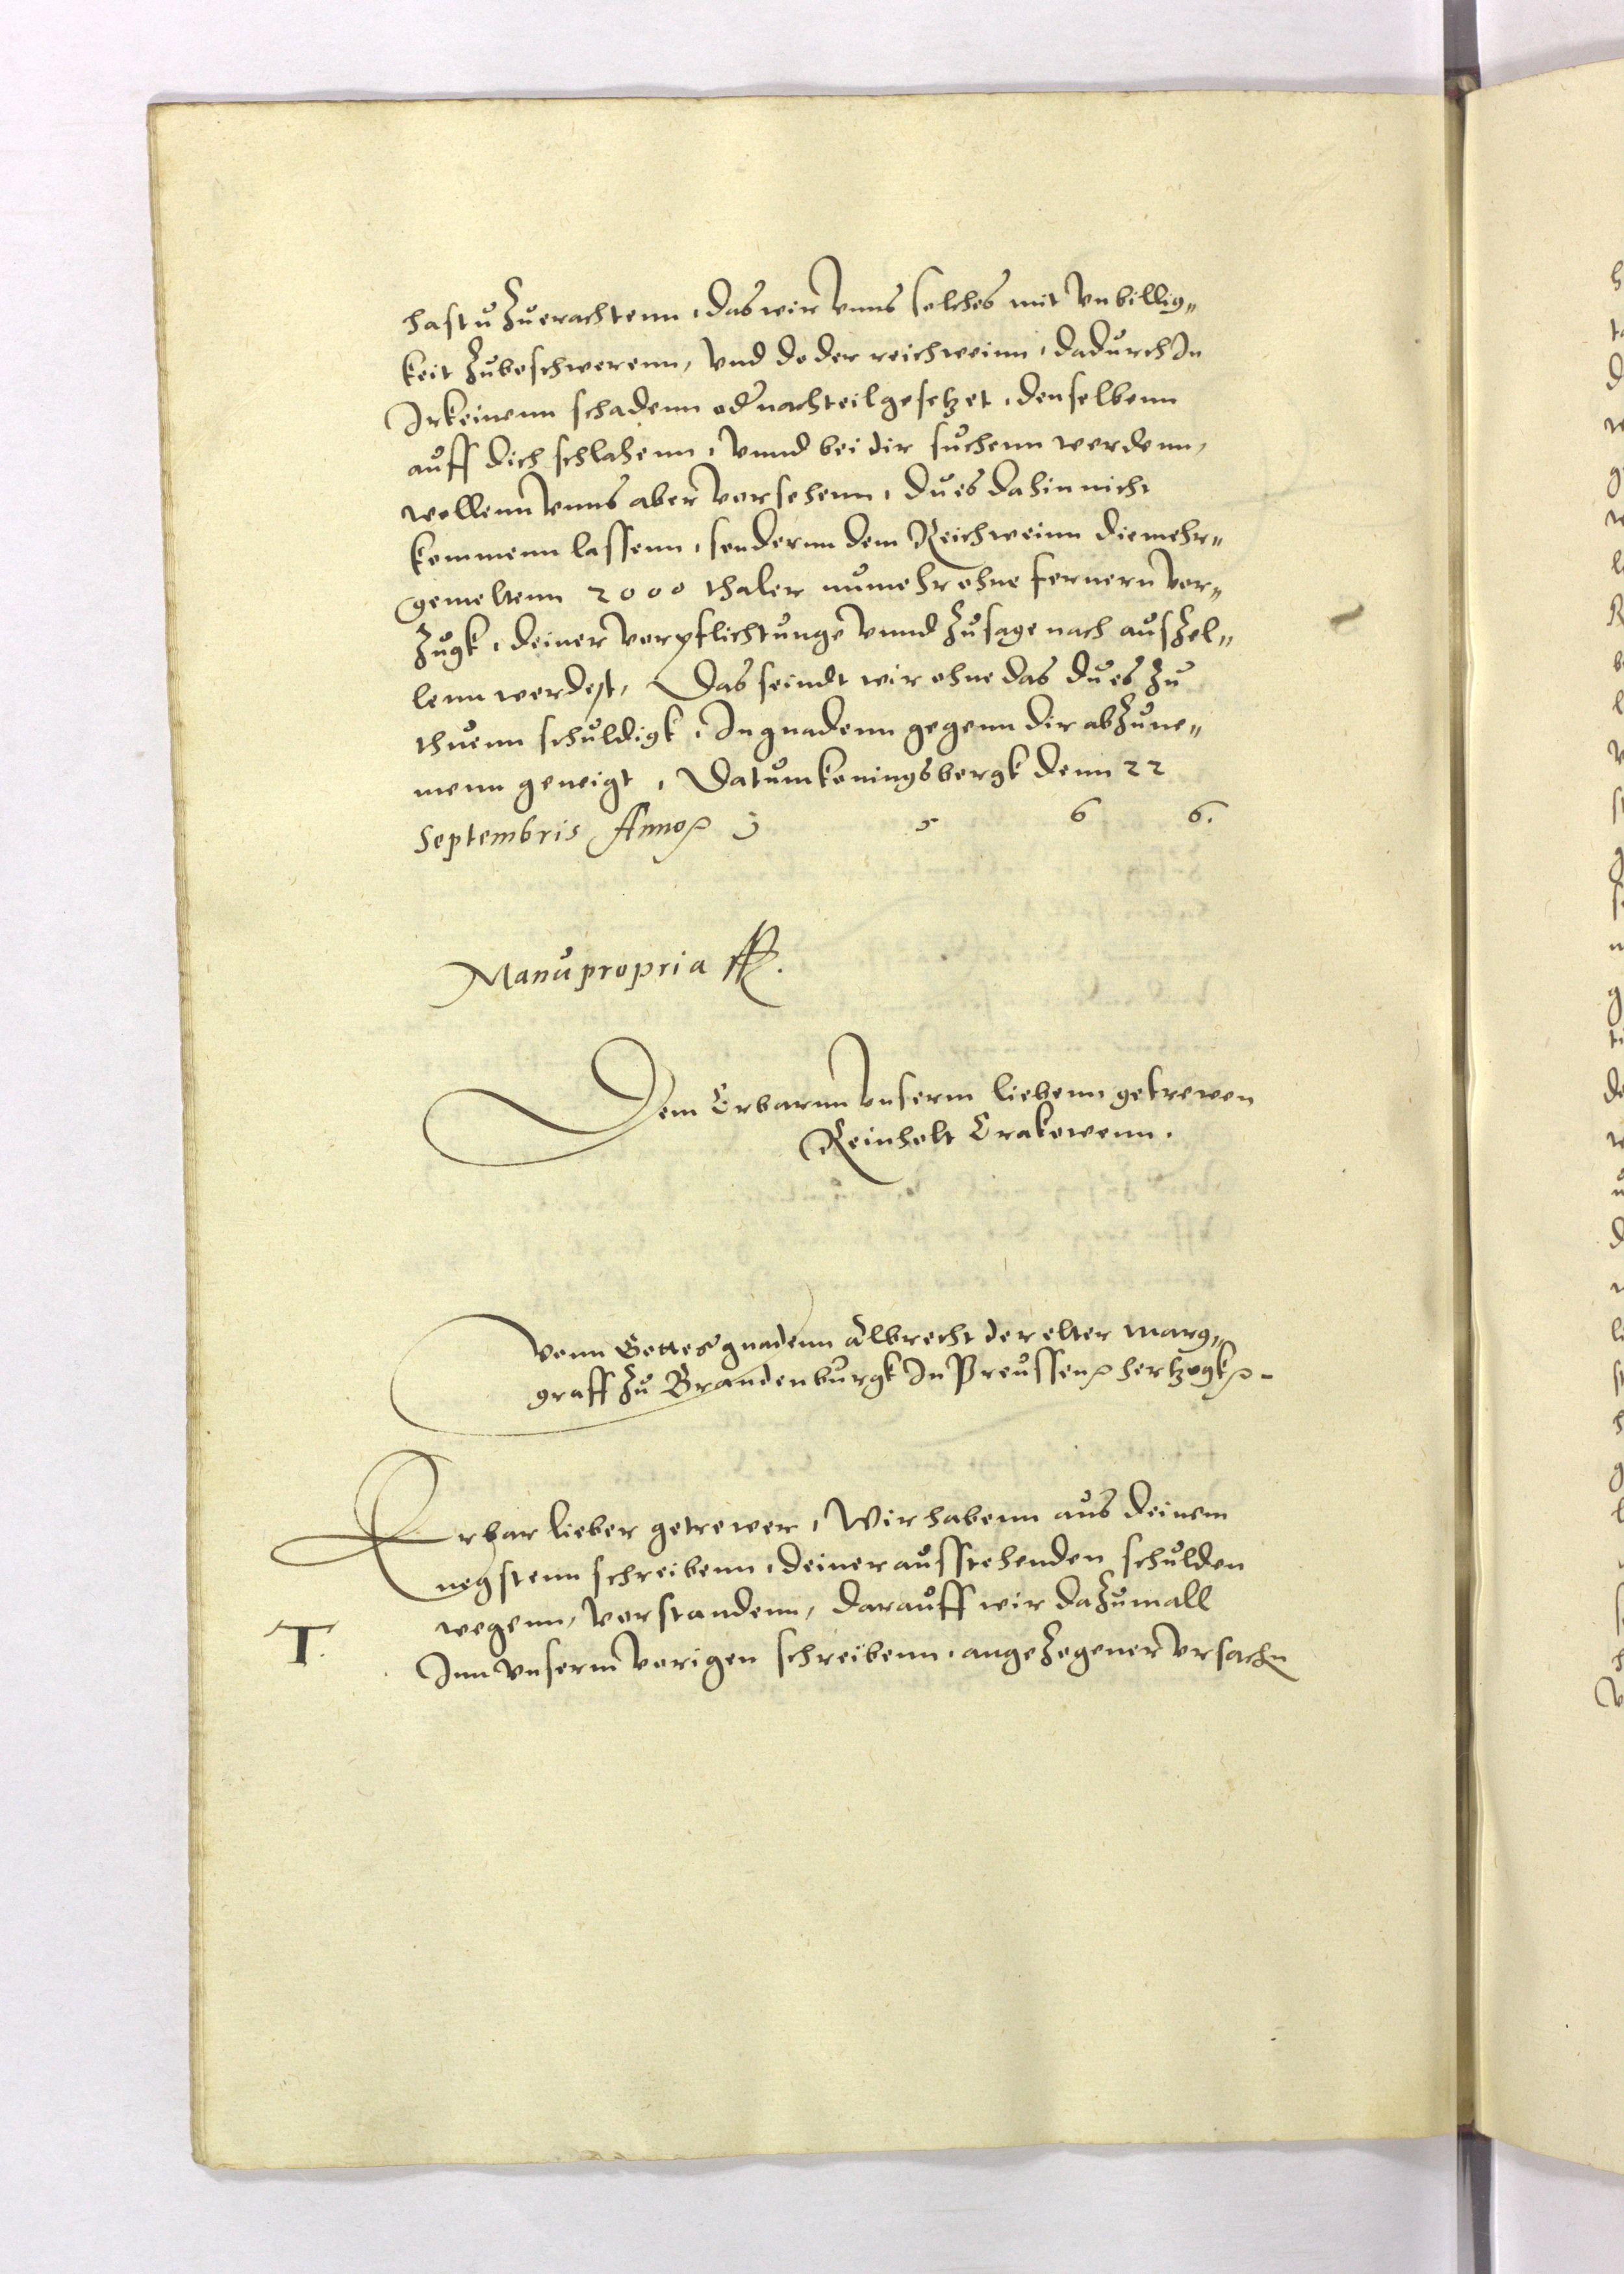 hastu zuerachtenn, das wir vnns solches mit vnbillig„
keit zubeschwerenn, vnd do der reichweinn, dadurch In
Irkeinenn schadenn oder nachteil gesetzet, denselbenn
auff dich schlahenn, vnnd bei dir suchenn werdenn,
wollenn vnns aber versehenn, du es dahin nicht
kommenn lassenn, sondernn dem Reichweinn die mehr„
gemeltenn 2000 thaler numehr ohne fernern vor„
zugk, deiner verpflichtunge vnnd zusage nach auszel„
lenn werdest, Das seindt wir ohne das du es zu
thuenn schuldigk, In gnadenn gegenn dir abzune„
menn geneigt, Datum konningsbergk denn 22
Septembris Anno 1 5 6 6.
Manu propria
Dem Erbarnn vnserm liebenn getrewen
Reinholt Crakowenn.
Vonn Gottes gnadenn Albrecht der elter Marg„
graff zu Brandenburgk In Preussen hertzogk
Erbar lieber getrewer, Wir habenn aus deinem
negstenn schreibenn, deiner ausstehenden schulden
wegenn, verstandenn, darauff wir dazumall
T.
Inn vnserm vorigen schreibenn, angezogener vrsachn